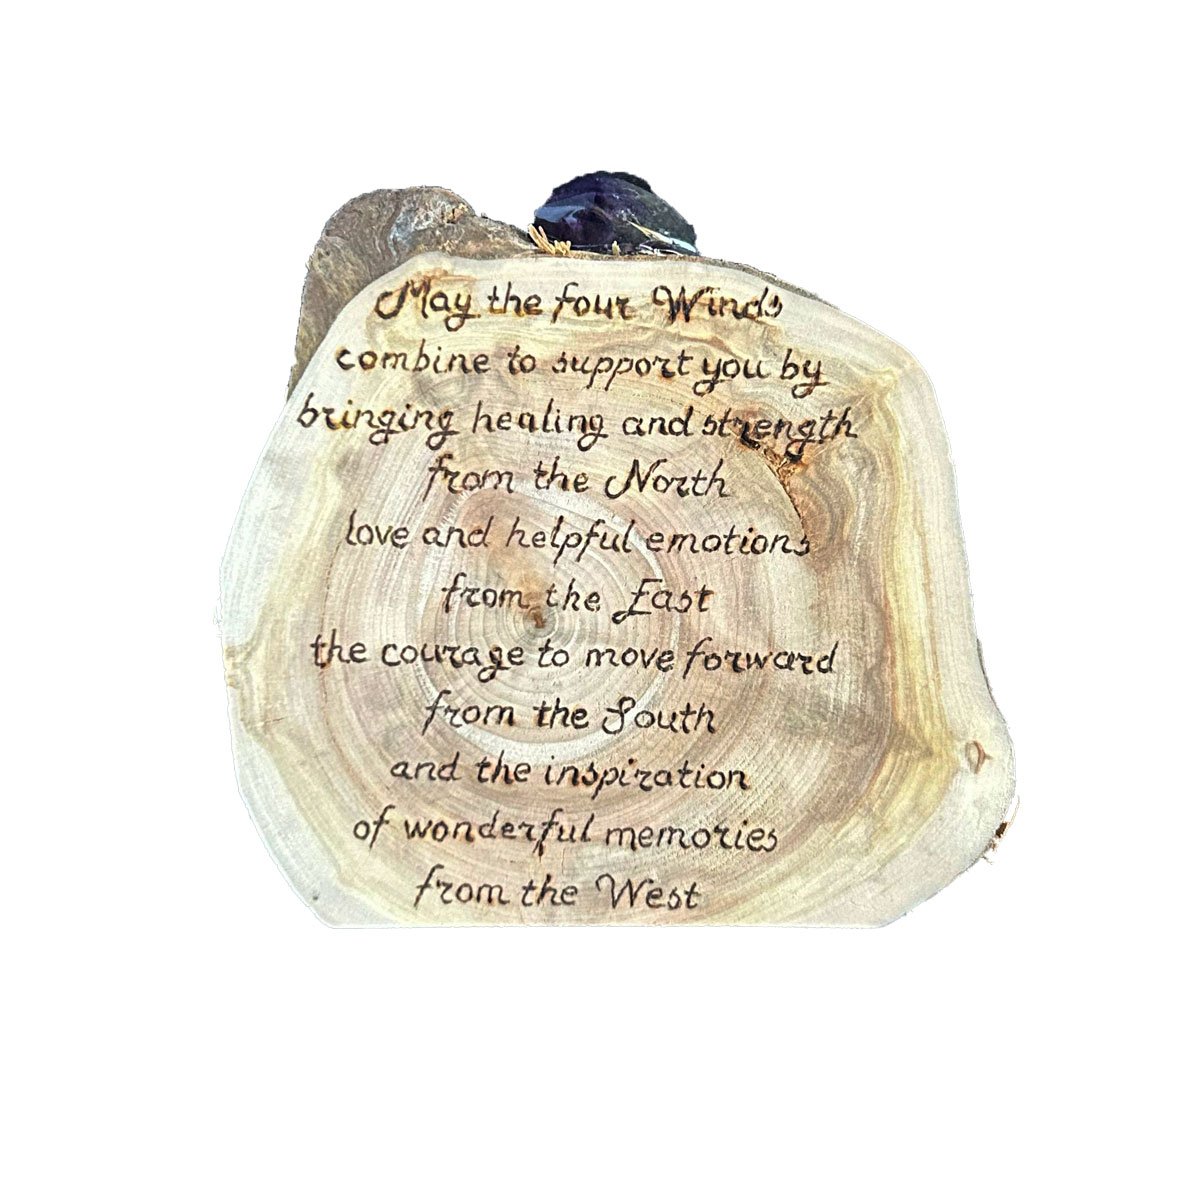 May the four Winds
combine to support you by
bringing healing and strength
from the North
love and helpful emotions
from the East
the courage to move forward
from the South
and the inspiration
of wonderful memories
from the West